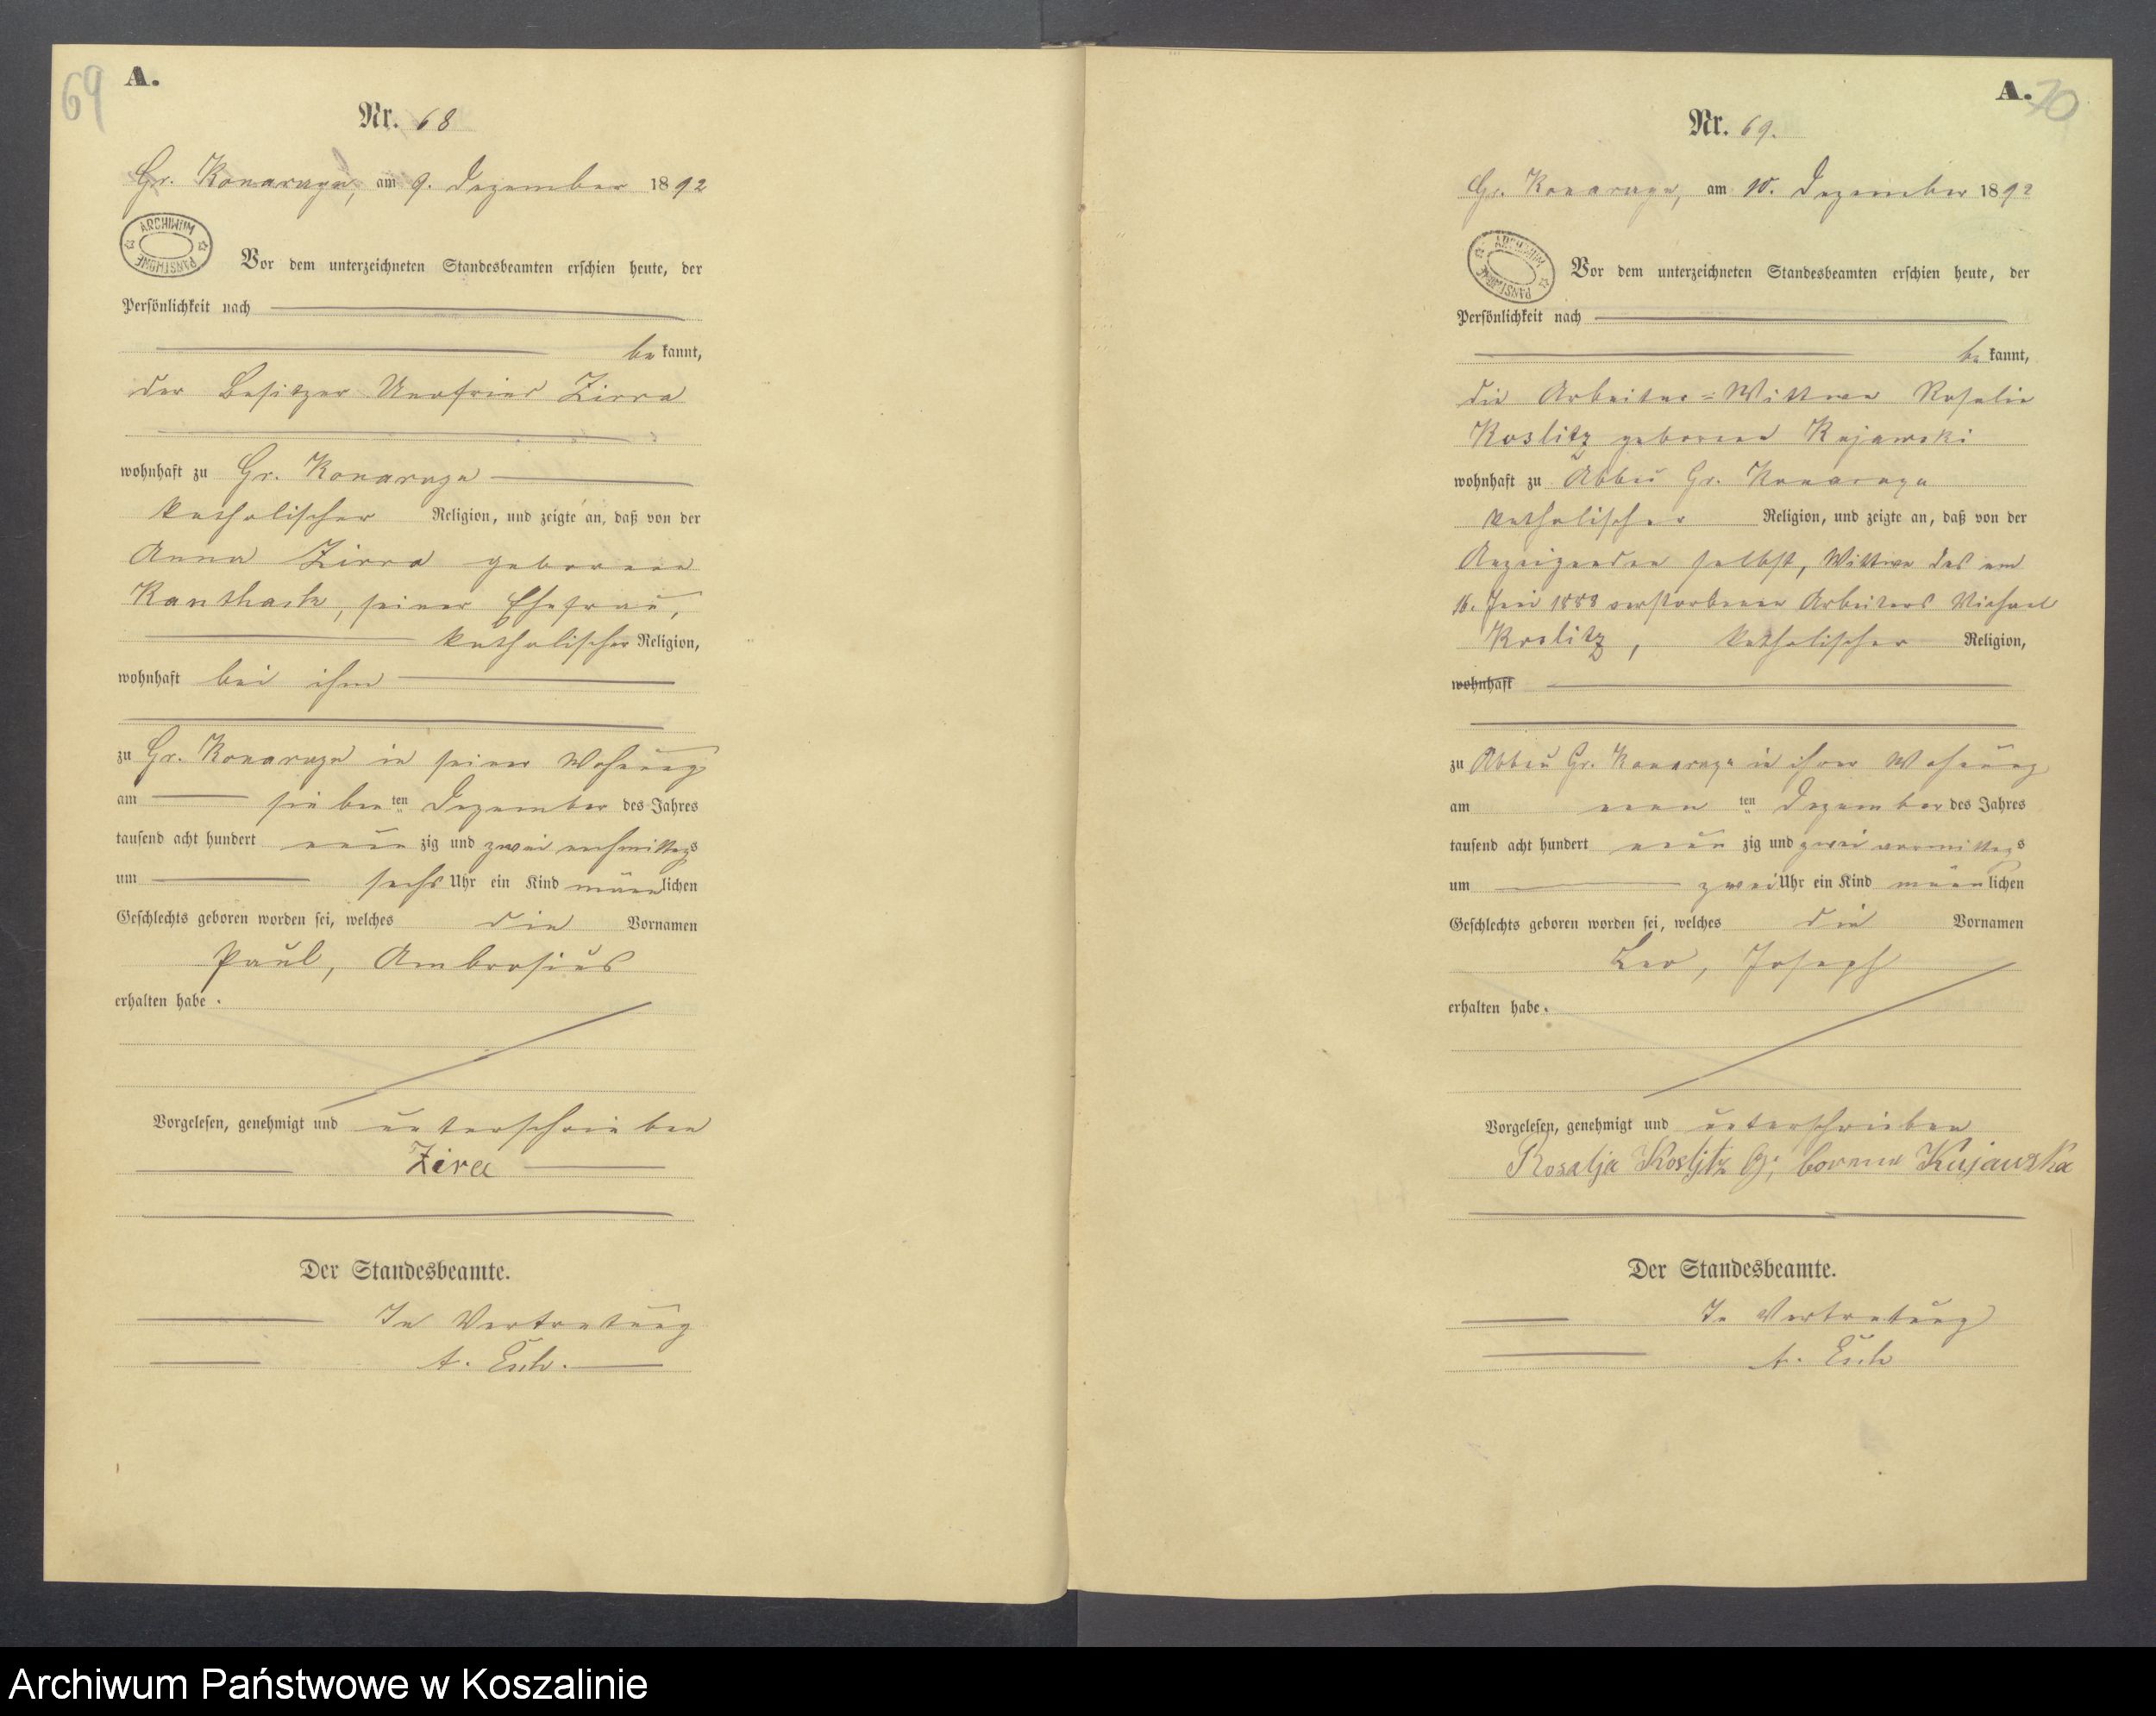 69
A.
Nr. 68
Gr. Konarczyn, am 9. Dezember 1892
ARCHIWUM PAŃSTWOWE
Vor dem unterzeichneten Standesbeamten erschien heute, der
Persönlichkeit nach
be kannt,
der Besitzer Zirra
wohnhaft zu Gr. Konarczyn
katholischer Religion, und zeigte an, daß von der
Anna Zirra geborene
Kanthack, seiner Ehefrau,
katholischer Religion,
wohnhaft bei ihm
zu Gr. Konarczyn in seiner Wohnung
am sieben ten Dezember des Jahres
tausend acht hundert neun zig und zwei nachmittags
um sechs Uhr ein Kind männlichen
Geschlechts geboren worden sei, welches die Vornamen
Paul, Ambrosius
erhalten habe.
Vorgelesen, genehmigt und unterschrieben
Zira
Der Standesbeamte.
In Vertretung
A. Esch.
A.
70
Nr. 69.
Gr. Konarczyn, am 10. Dezember 1892
ARCHIWUM PAŃSTWOWE
Vor dem unterzeichneten Standesbeamten erschien heute, der
Persönlichkeit nach
be kannt,
die Arbeiter=Wittwe Rosalie
Koslitz geborene Kujawski
wohnhaft zu Abbau Gr. Konarczyn
katholischer Religion, und zeigte an, daß von der
Anzeigenden selbst, Wittwe des am
16. 1888 verstorbenen Arbeiters Michael
Koslitz, katholischer Religion,
wohnhaft
zu Abbau Gr. Konarczyn in ihrer Wohnung
am neun ten Dezember des Jahres
tausend acht hundert neun zig und zwei vormittags
um zwei Uhr ein Kind männlichen
Geschlechts geboren worden sei, welches die Vornamen
Leo, Joseph
erhalten habe.
Vorgelesen, genehmigt und unterschrieben
Rosalja Koslitz geborene Kujawska
Der Standesbeamte.
In Vertretung
A. Esch
Archiwum Państwowe w Koszalinie